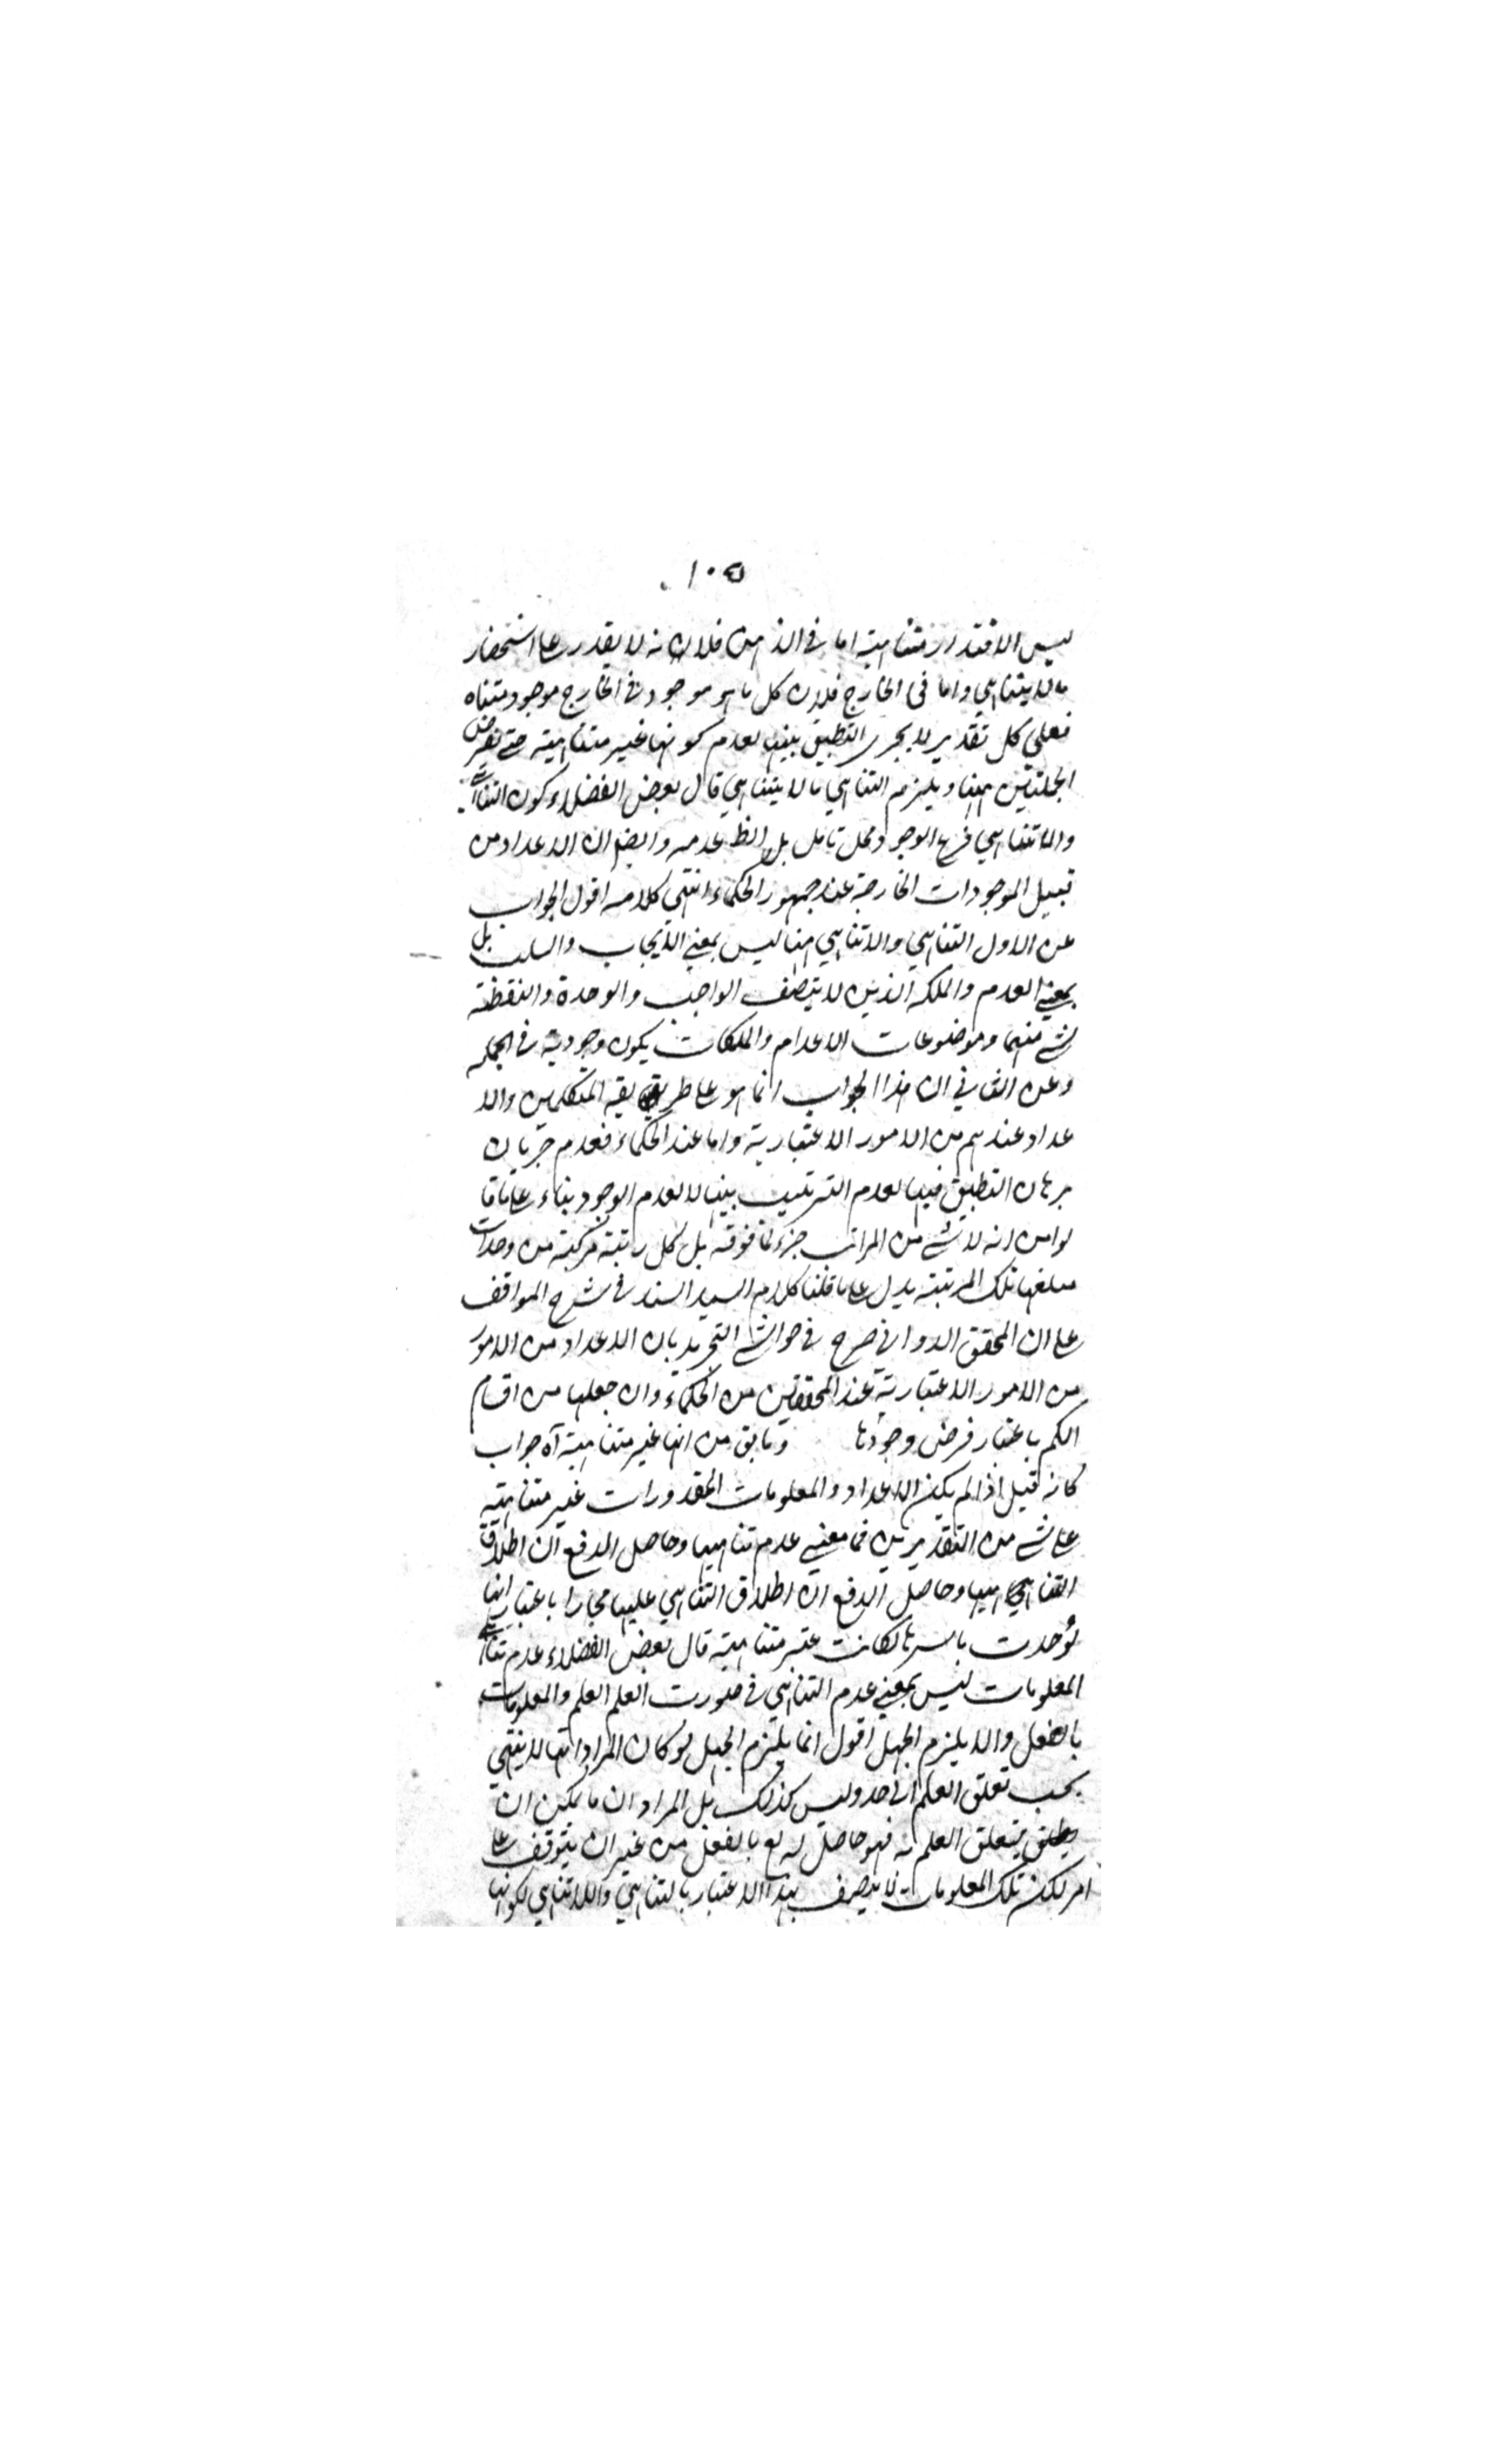 ١٠٥
ليس الا قدر متناهية اما فى الذهن فلانه لا يقدر على استحضار
ما لا يتناهي واما فى الخارج فلان كل ما هو موجود فى الخارج موجود متناه
فعلى كل تقدير لا يجرى التطبيق بينها لعدم كونها غير متناهية حتى نفرض
الجملتين هنا ويلزم التناهي ما لا يتناهي قال بعض الفضلاء كون التناهي
واللاتناهي فرع الوجود محل تامل بل الظ عدمه وايضا ان الاعداد من
قبيل الموجودات الخارجة عند جمهور الحكماء انتهى كلامه اقول الجواب
عن الاول التناهي والاتناهي هنا ليس بمعنى الايجاب والسلب بل
بمعنى العدم والملكة الذين لا يتصف الواجب والوحدة والنقطة
بشى منهما وموضوعات الاعدام والملكات يكون وجودية فى الجملة
وعن الثاني ان هذا الجواب انما هو على طريقة المتكلمين والا
عداد عندهم من الامور الاعتبارية واما عند الحكماء فعدم جريان
برهان التطبيق فيها لعدم الترتيب بينها لا لعدم الوجود بناء على ما قا
لوا من انه لا شى من المراتب جزء لما فوقه بل كل رتبة مركبة من وحدات
مبلغها تلك المرتبة يدل على ما قلنا كلام السيد السند فى شرح المواقف
على ان المحقق الدواني صرح فى حواشى التجريد بان الاعداد من الامور
من الامور الاعتبارية عند المحققين من الحكماء وان جعلها من اقسام
الكم باعتبار فرض وجودها وما يق من انها غير متناهية آه جواب
كانه قيل اذا لم يكن الاعداد والمعلومات المقدورات غير متناهية
على شى من التقديرين فما معنى عدم تناهيها وحاصل الدفع ان اطلاق
التناهي اهيها وحاصل الدفع ان اطلاق التناهي عليها مجازا باعتبار انها
لو وحدت باسرها لكانت غير متناهية قال بعض الفضلاء عدم تناهي
المعلومات ليس بمعنى عدم التناهي فى صورت العلم العلم والمعلومات
بالفعل والا يلزم الجهل اقول انما يلزم الجهل لو كان المراد انها لا ينتهي
بحسب تعلق العلم الى حد وليس كذلك بل المراد ان ما يمكن ان
يتعلق العلم به فهو حاصل له تع بالفعل من غير ان يتوقف على
امر لكن تلك المعلومات لا يتصف بهذا الاعتبار بالتناهي واللاتناهي لكونها